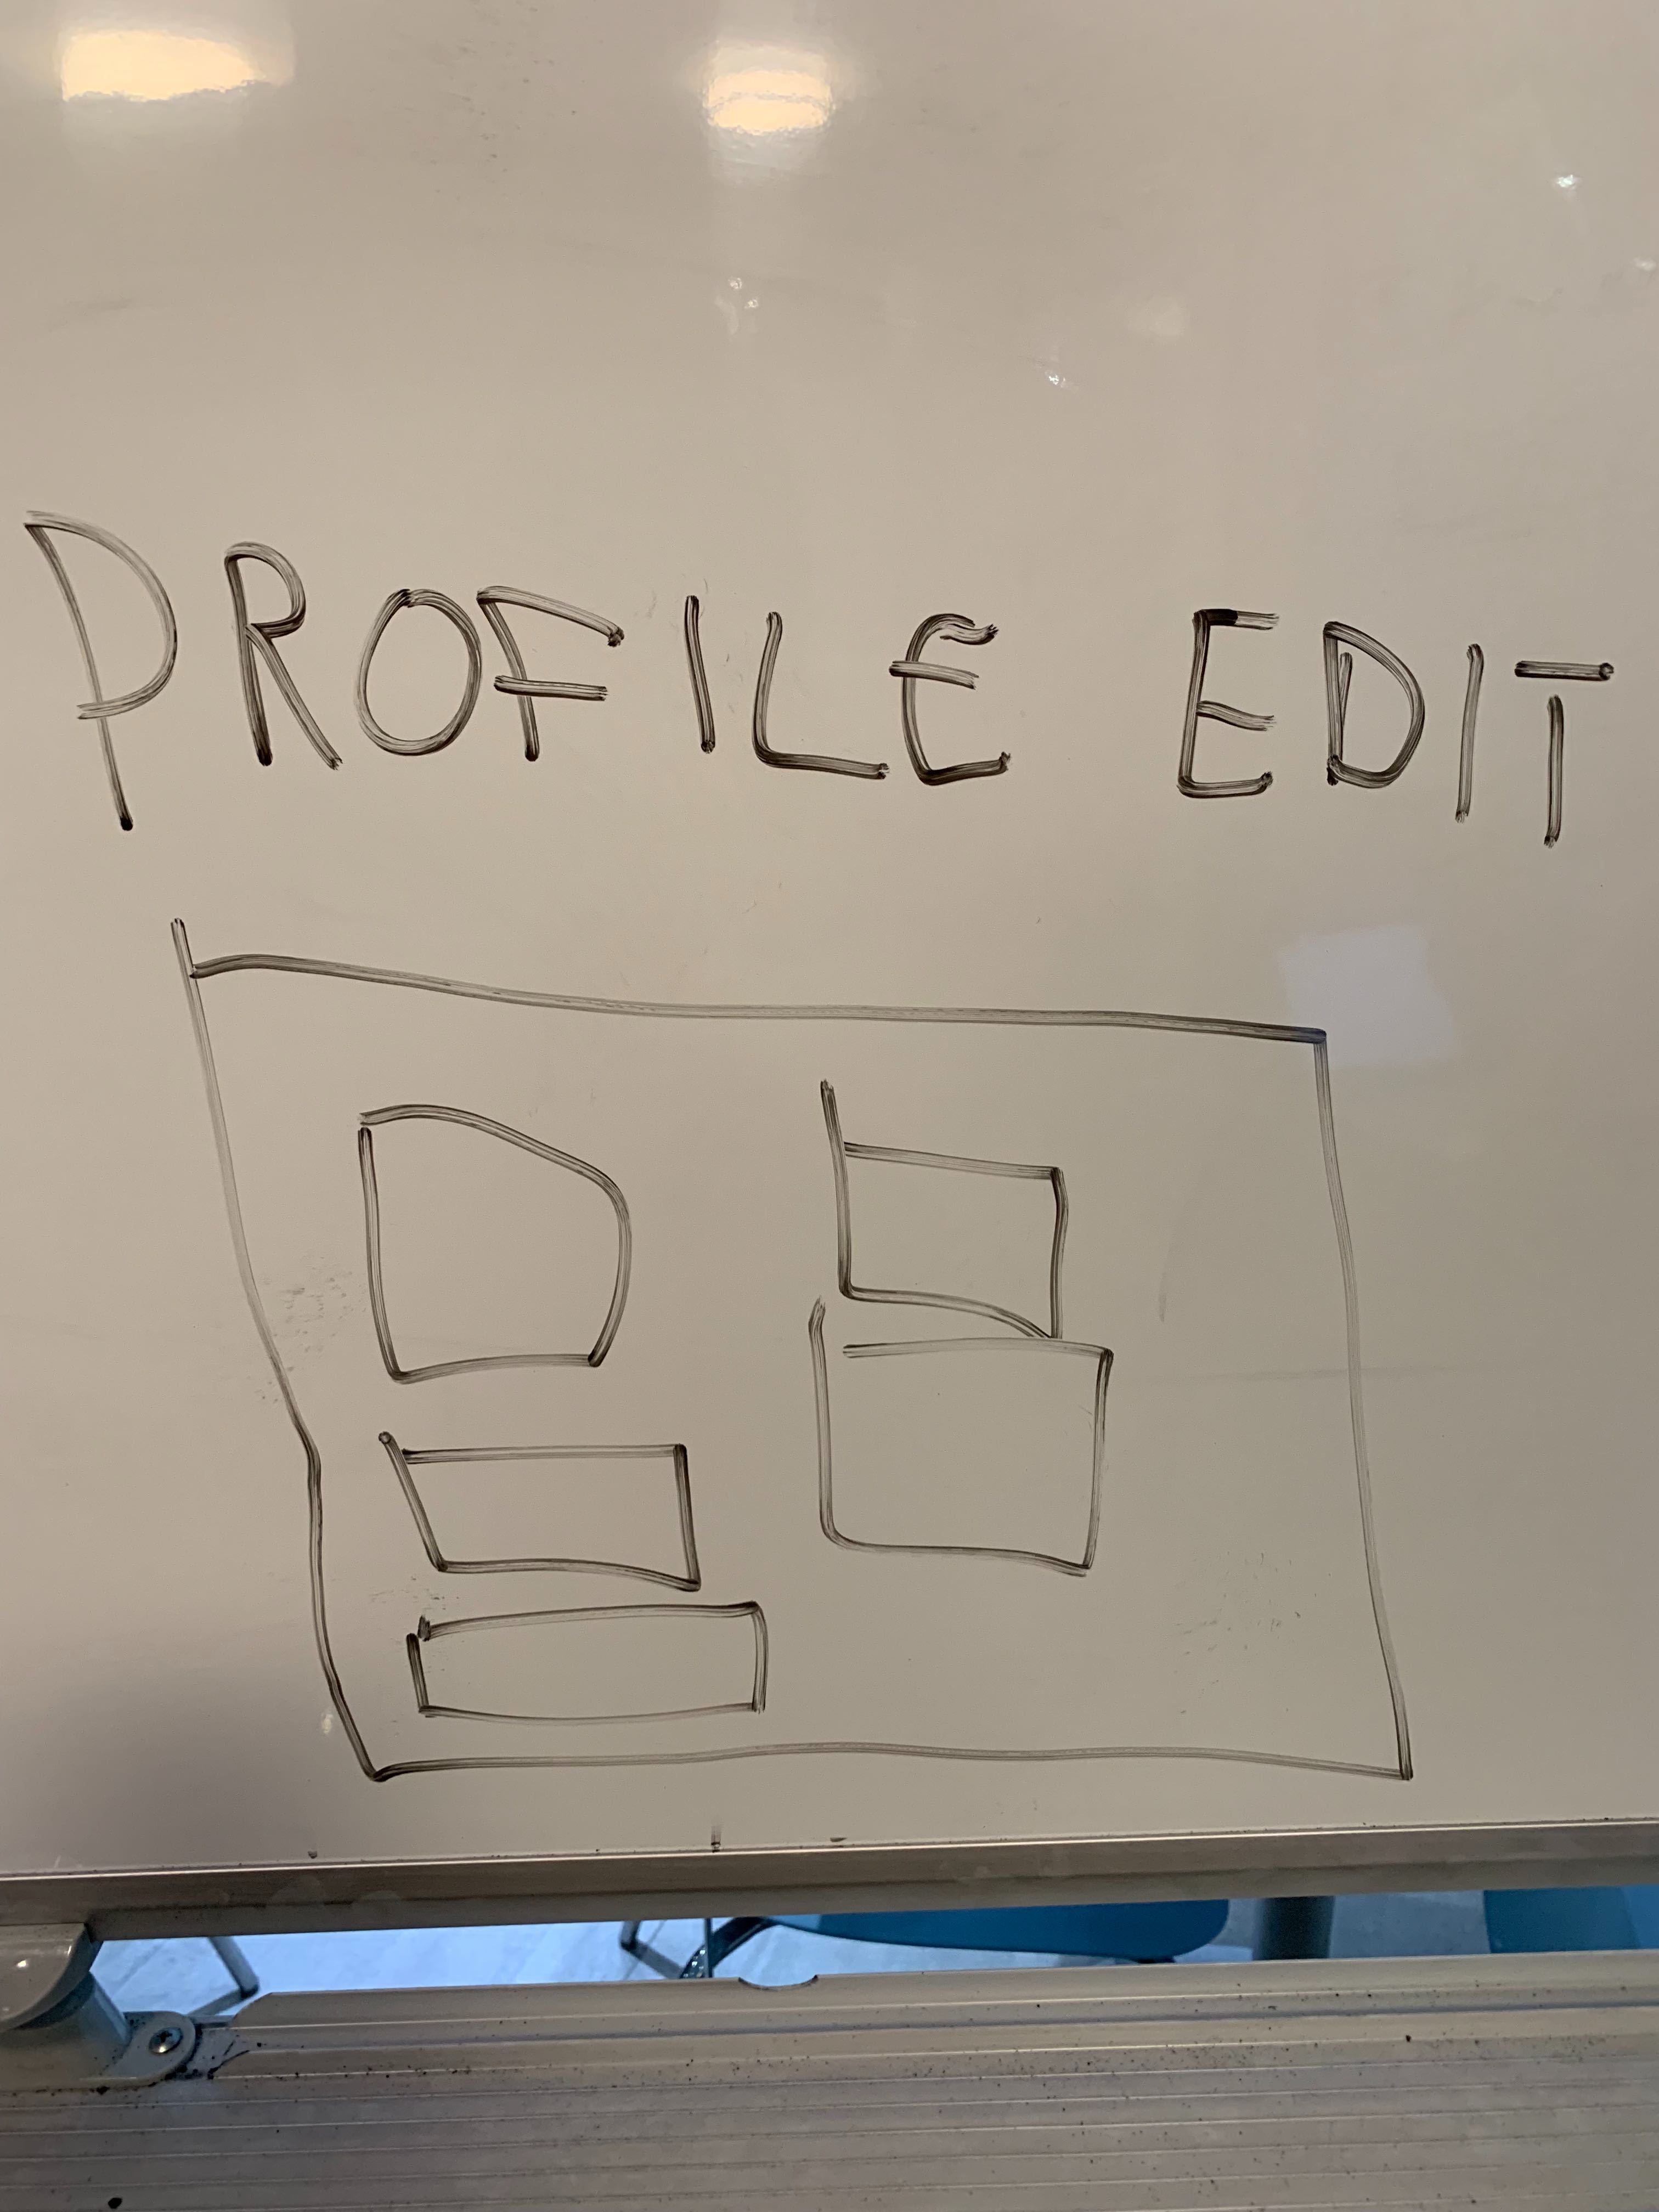 PROFILE EDIT